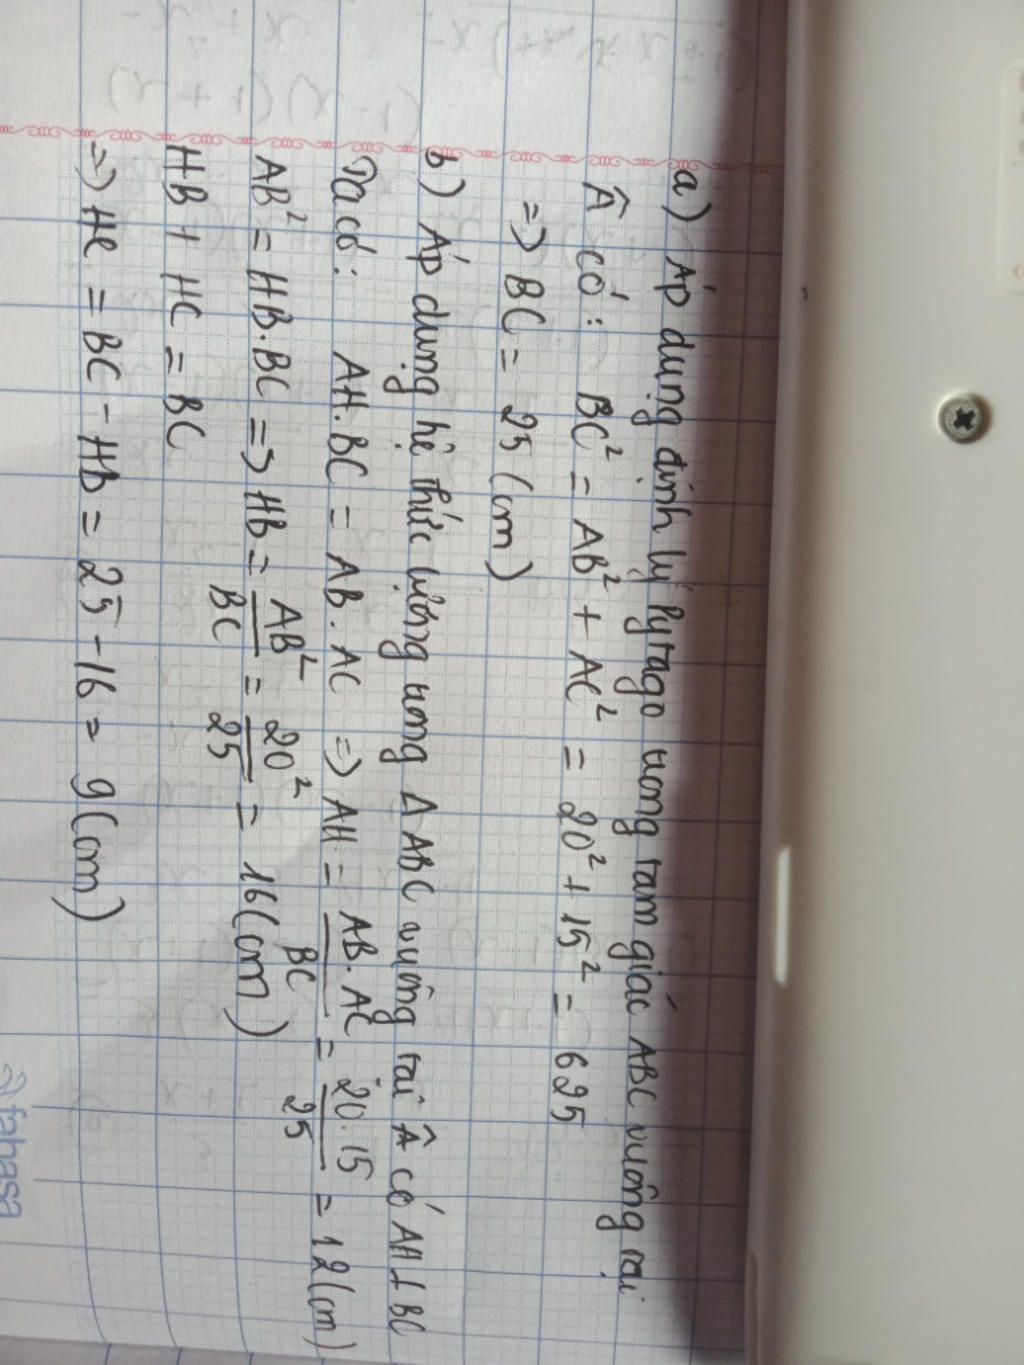 a) Áp dụng định lý Pytago trong tam giác ABC vuông tại
Â có: BC² = AB² + AC² = 20² + 15² = 625
=> BC = 25 (cm)
b) Áp dụng hệ thức lượng trong Δ ABC vuông tại Â có AH ⊥ BC
Ta có: AH.BC = AB.AC => AH = AB.AC/BC = 20.15/25 = 12(cm)
AB² = HB.BC => HB = AB²/BC = 20²/25 = 16(cm)
HB + HC = BC
=> HC = BC - HB = 25 - 16 = 9(cm)
fahasa